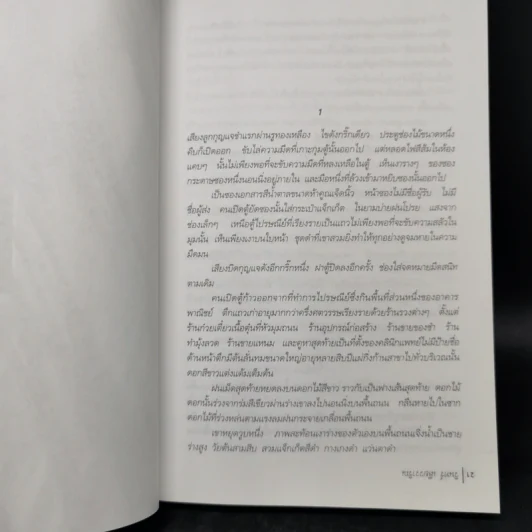 1
เสียงลูกกุญแจชำแรกผ่านรูทองเหลือง ไขดังกริ๊กเดียว ประตูช่องไม้ขนาดหนึ่ง
คืบก็เปิดออก ขับไล่ความมืดที่เกาะกุมตู้นั้นออกไป แต่หลอดไฟสีส้มในห้อง
แคบๆ นั้นไม่เพียงพอที่จะขับความมืดที่หลงเหลือในตู้ เห็นเงารางๆ ของซอง
กระดาษซองหนึ่งนอนนิ่งอยู่ภายใน และมือหนึ่งที่ล้วงเข้ามาหยิบซองนั้นออกไป
เป็นซองเอกสารสีน้ำตาลขนาดห้าคูณเจ็ดนิ้ว หน้าซองไม่มีชื่อผู้รับ ไม่มี
ชื่อผู้ส่ง คนเปิดตู้ยัดซองนั้นใส่กระเป๋าแจ็กเก็ต ในยามบ่ายฝนโปรย แสงจาก
ช่องเล็กๆ เหนือตู้ไปรษณีย์ที่เรียงรายเป็นแถวไม่เพียงพอที่จะขับความสลัวใน
มุมนั้น เห็นเพียงเงาบนใบหน้า ชุดดำที่เขาสวมยิ่งทำให้ทุกอย่างดูจมหายในความ
มืดมน
เสียงบิดกุญแจดังอีกกริ๊กหนึ่ง ฝาตู้ปิดลงอีกครั้ง ช่องใส่จดหมายมืดสนิท
ตามเดิม
คนเปิดตู้ก้าวออกจากที่ทำการไปรษณีย์ซึ่งกินพื้นที่ส่วนหนึ่งของอาคาร
พาณิชย์ ตึกแถวเก่าอายุมากกว่าครึ่งศตวรรษเรียงรายด้วยร้านรวงต่างๆ ตั้งแต่
ร้านก๋วยเตี๋ยวเนื้อตุ๋นที่หัวมุมถนน ร้านอุปกรณ์ก่อสร้าง ร้านขายของชำ ร้าน
ทำมุ้งลวด ร้านขายแหนม และคูหาสุดท้ายเป็นที่ตั้งของคลินิกแพทย์ไม่มีป้ายชื่อ
ด้านหน้าตึกมีต้นลั่นทมขนาดใหญ่อายุหลายสิบปีแผ่กิ่งก้านสาขาไปทั่วบริเวณนั้น
ดอกสีขาวแต่งแต้มเต็มต้น
ฝนเม็ดสุดท้ายหยดลงบนดอกไม้สีขาว ราวกับเป็นฟางเส้นสุดท้าย ดอกไม้
ดอกนั้นร่วงจากร่มสีเขียวผ่านร่างเขาลงไปนอนนิ่งบนพื้นถนน กลืนหายไปในซาก
ดอกไม้ที่ร่วงหล่นตามแรงลมฝนกระจายเกลื่อนพื้นถนน
เขาหยุดวูบหนึ่ง ภาพสะท้อนเงาร่างของตัวเองบนพื้นถนนเจิ่งน้ำเป็นชาย
ร่างสูง วัยต้นสามสิบ สวมแจ็กเก็ตสีดำ กางเกงดำ แว่นตาดำ
21 | วินทร์ เลียววาริณ